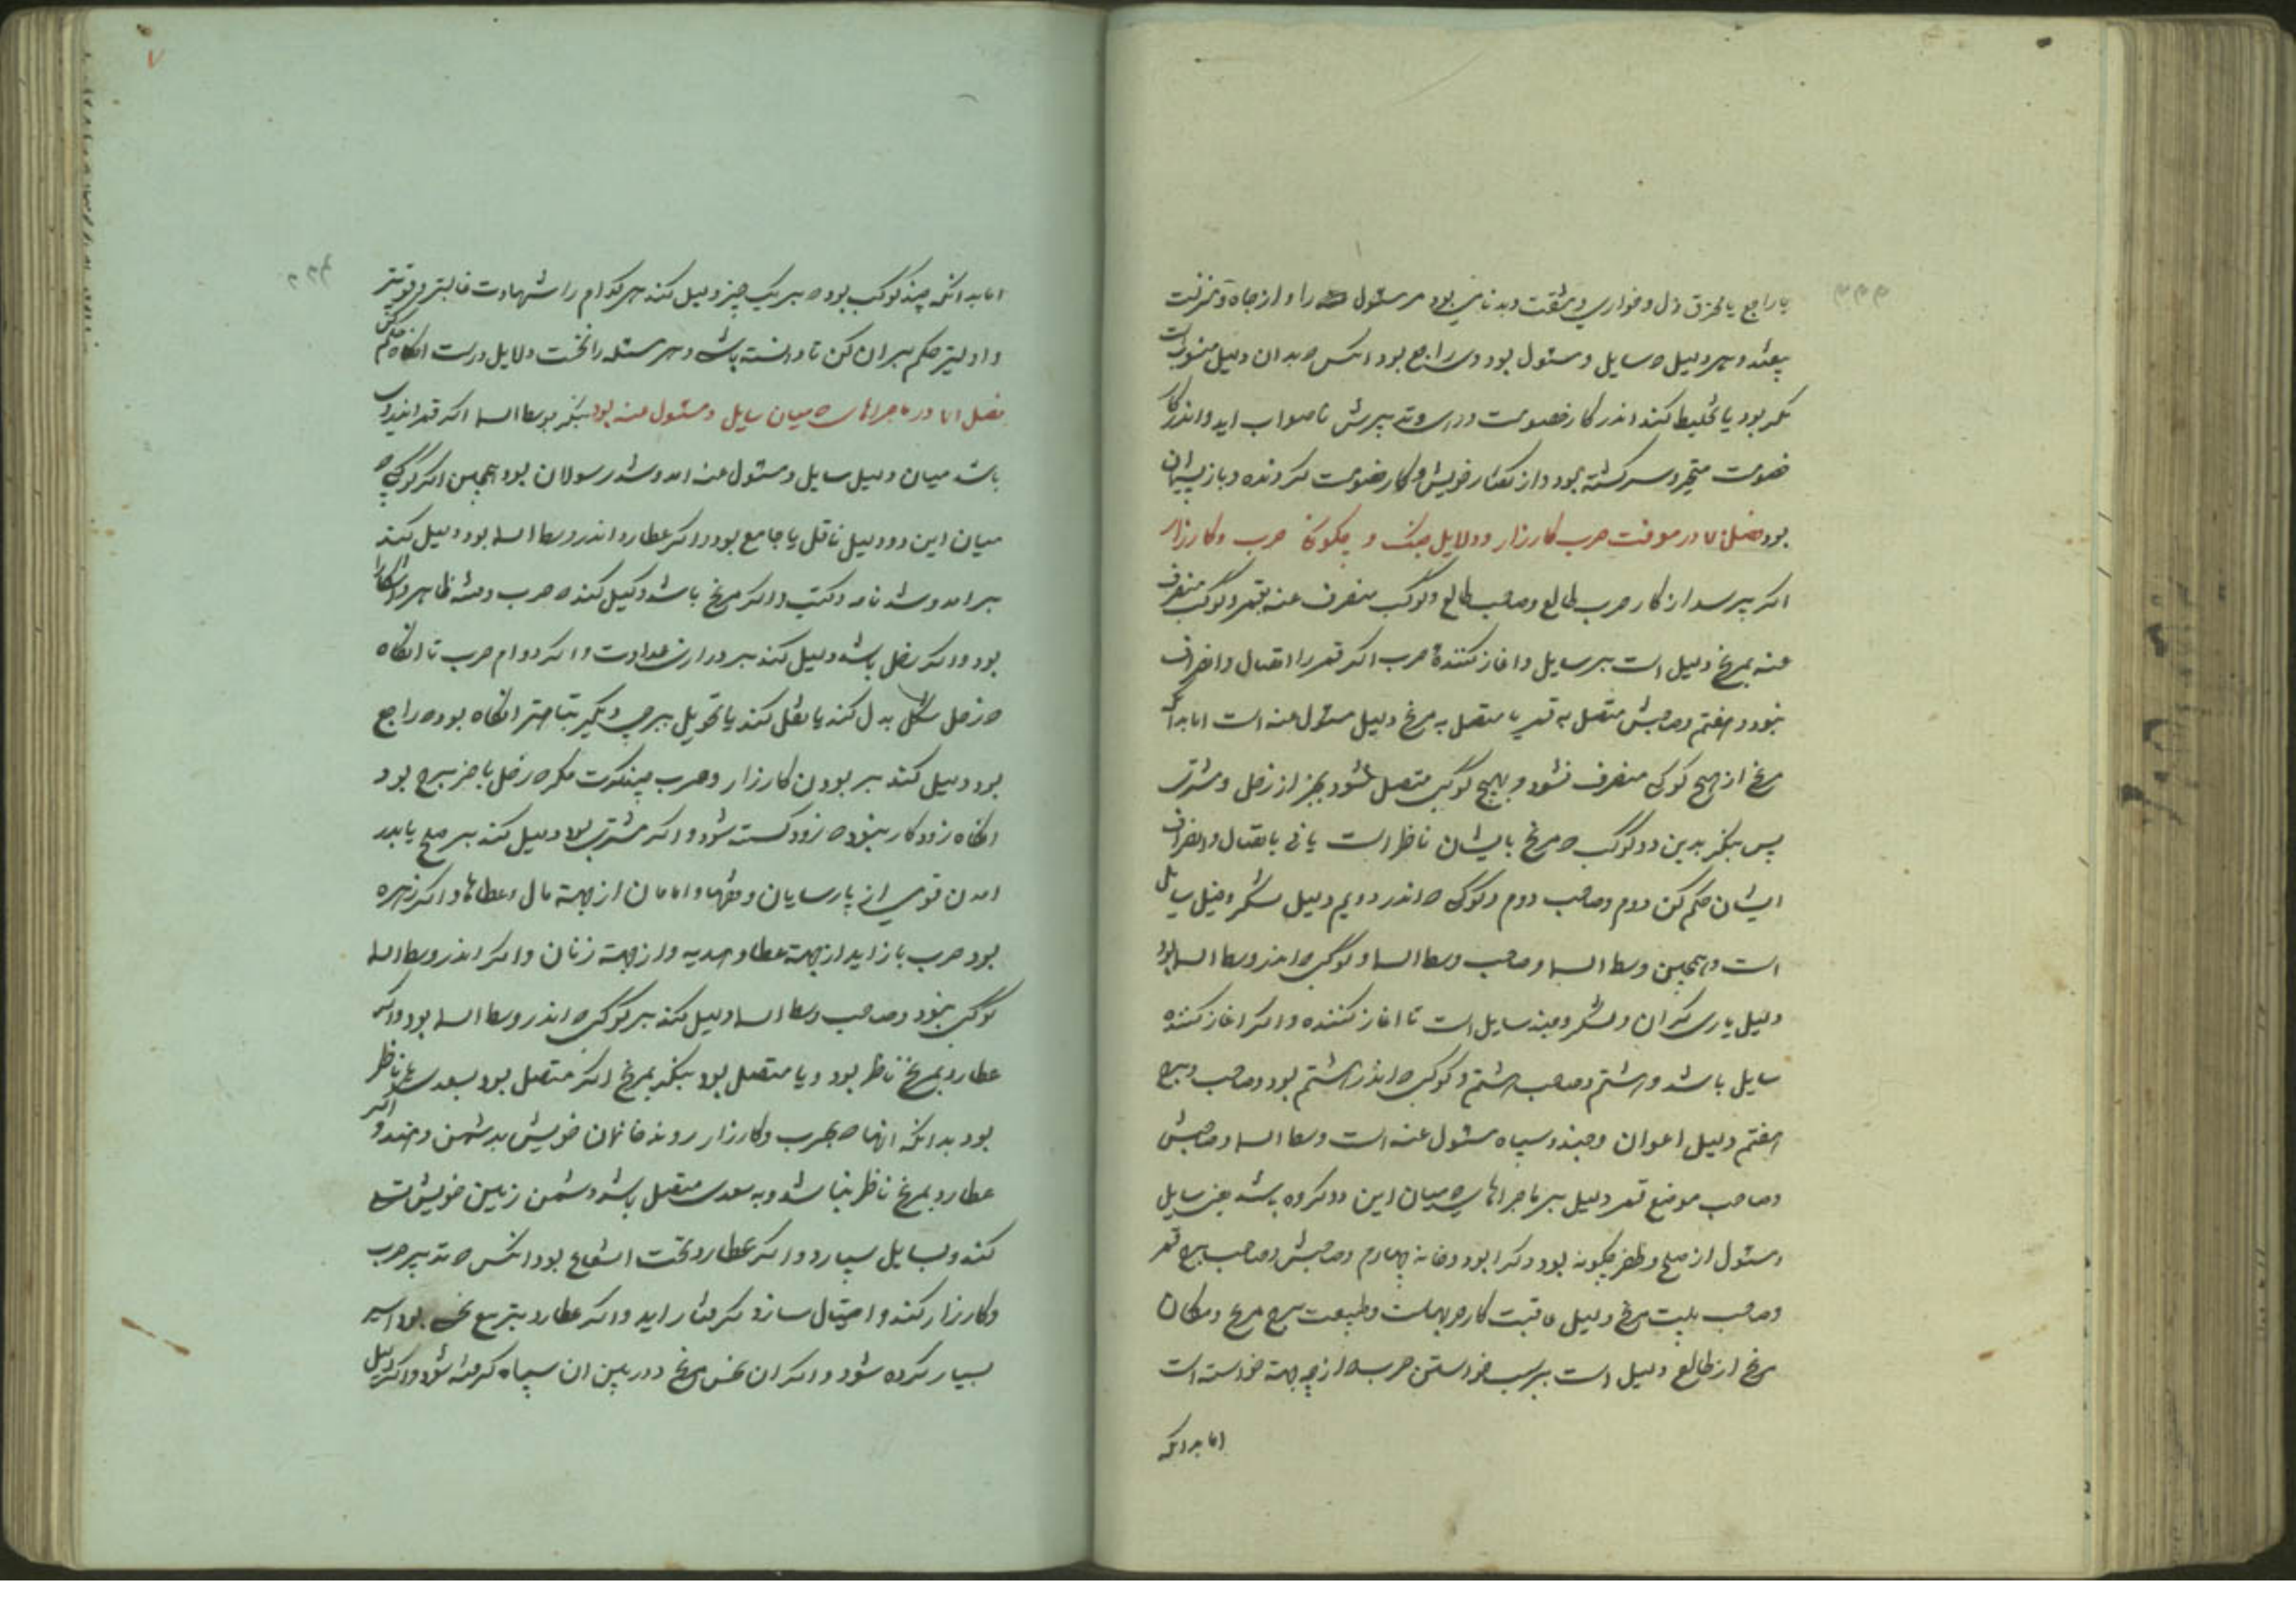 یا راجع یا محترق ذل و خواری و مشقت و بدنامی بود مر مسئول را و از جاه و منزلت
بیفتد و هر دلیل ه سایل و مسئول بود وی راجع بود انکس ه بدان دلیل منسوبست
مکر بود یا تخلیط کند اندر کار خصومت و تدبیرش ناصواب اید و اندر کار
خصومت متحیر و سرکشته بود و از کفتار خویش و کار خصومت کردنده و باز پشیمان
بود فصل در معرفت حرب کارزار و دلایل جنک و چکونه حرب و کارزار
اکر پرسد از کار حرب طالع و صاحب طالع و کوکب منصرف عنه بقمر و کوکب منصرف
عنه بمریخ دلیل است بر سایل و اغاز کنندۀ حرب اکر قمر را اتصال و انصراف
نبود و هفتم و صاحبش متصل به قمر یا متصل به مریخ دلیل مسئول عنه است اما بدانک
مریخ از هیچ کوکبی منصرف نشود و بهیچ کوکبی متصل نشود بجز از زحل و مشتری
پس بنکر بدین دو کوکب ه مریخ بایشان ناظر است یا نی باتصال و انصراف
ایشان حکم کن دوم و صاحب دوم و کوکبی ه اندر دویم دلیل لشکر و خیل سایل
است و همچنین وسط السما و صاحب وسط السما و کوکبی ه اندر وسط السما بود
دلیل یاری کران و لشکر و جند سایل است تا اغاز کننده و اکر اغاز کننده
سایل باشد و هشتم و صاحب هشتم و کوکبی ه اندر هشتم بود و صاحب برج
هفتم دلیل اعوان و جند و سپاه مسئول عنه است وسط السما و صاحبش
و صاحب موضع قمر دلیل بر ماجراهای ه میان این دو کروه باشد یعنی سایل
و مسئول از صلح و ظفر چکونه بود و کرا بود و خانه چهارم و صاحبش و صاحب برج قمر
و صاحب بیت مریخ دلیل عاقبت کار حربهاست و طبیعت برج مریخ و مکان
مریخ از طالع دلیل است بر سبب خواستن حرب ه از چه جهة خواسته است
اما بدانکه
۷
اما بدانکه چند کوکب بود ه بر یک چیز دلیل کند هر کدام را شهادت غالبتر و قویتر
و اولیتر حکم بران کن تا دانسته باشی و هر مسئله را نخست دلایل درست انکاه حکم کن
فصل اما در ماجراهای ه میان سایل و مسئول عنه بود بنکر بوسط السما اکر قمر اندر وی
باشد میان دلیل سایل و مسئول عنه امد و شد رسولان بود همچنین اکر کوکبی ه
میان این دو دلیل ناقل یا جامع بود و اکر عطارد اندر وسط السما بود دلیل کند
بر امد و شد نامه و کتب و اکر مریخ باشد دلیل کند ه حرب و فتنه ظاهر و اشکارا
بود و اکر زحل باشد دلیل کند بر درازی عداوت و اکر دوام حرب تا انکاه
ه زحل شکل بدل کند یا نقل کند یا تحویل ببرجی دیکر بتاختر انکاه بود ه راجع
بود دلیل کند بر بودن کارزار و حرب مکر ه زحل باخر برج بود
انکاه زود کار بنبود ه زود کسته شود و اکر مشتری بود دلیل کند بر صلح یا بدر
امدن قومی از پارسایان و فقها و امامان از جهة مال و عطاها و اکر زهره
بود حرب باز اید از جهة عطا و هدیه و از جهة زنان و اکر اندر وسط السما
کوکبی نبود و صاحب وسط السما دلیل کند بر کوکبی ه اندر وسط السما بود و اکر
عطارد بمریخ ناظر بود و یا متصل بود بنکر بمریخ اکر متصل بود بسعدی یا ناظر
بود بدانکه انها ه بحرب و کارزار روند خانمان خویش بدشمن دهند و اکر
عطارد بمریخ ناظر نباشد و به سعدی متصل باشد دشمن زمین خویش
کند و بسایل سپارد و اکر عطارد تحت الشعاع بود انکس ه تدبیر حرب
و کارزار کند و احتیال سازد کرفتار اید و اکر عطارد بتربیع نحس بود اسیر
بسیار کرده شود و اکر ان نحس مریخ بود رئیس ان سپاه کرفته شود و اکر دلیل